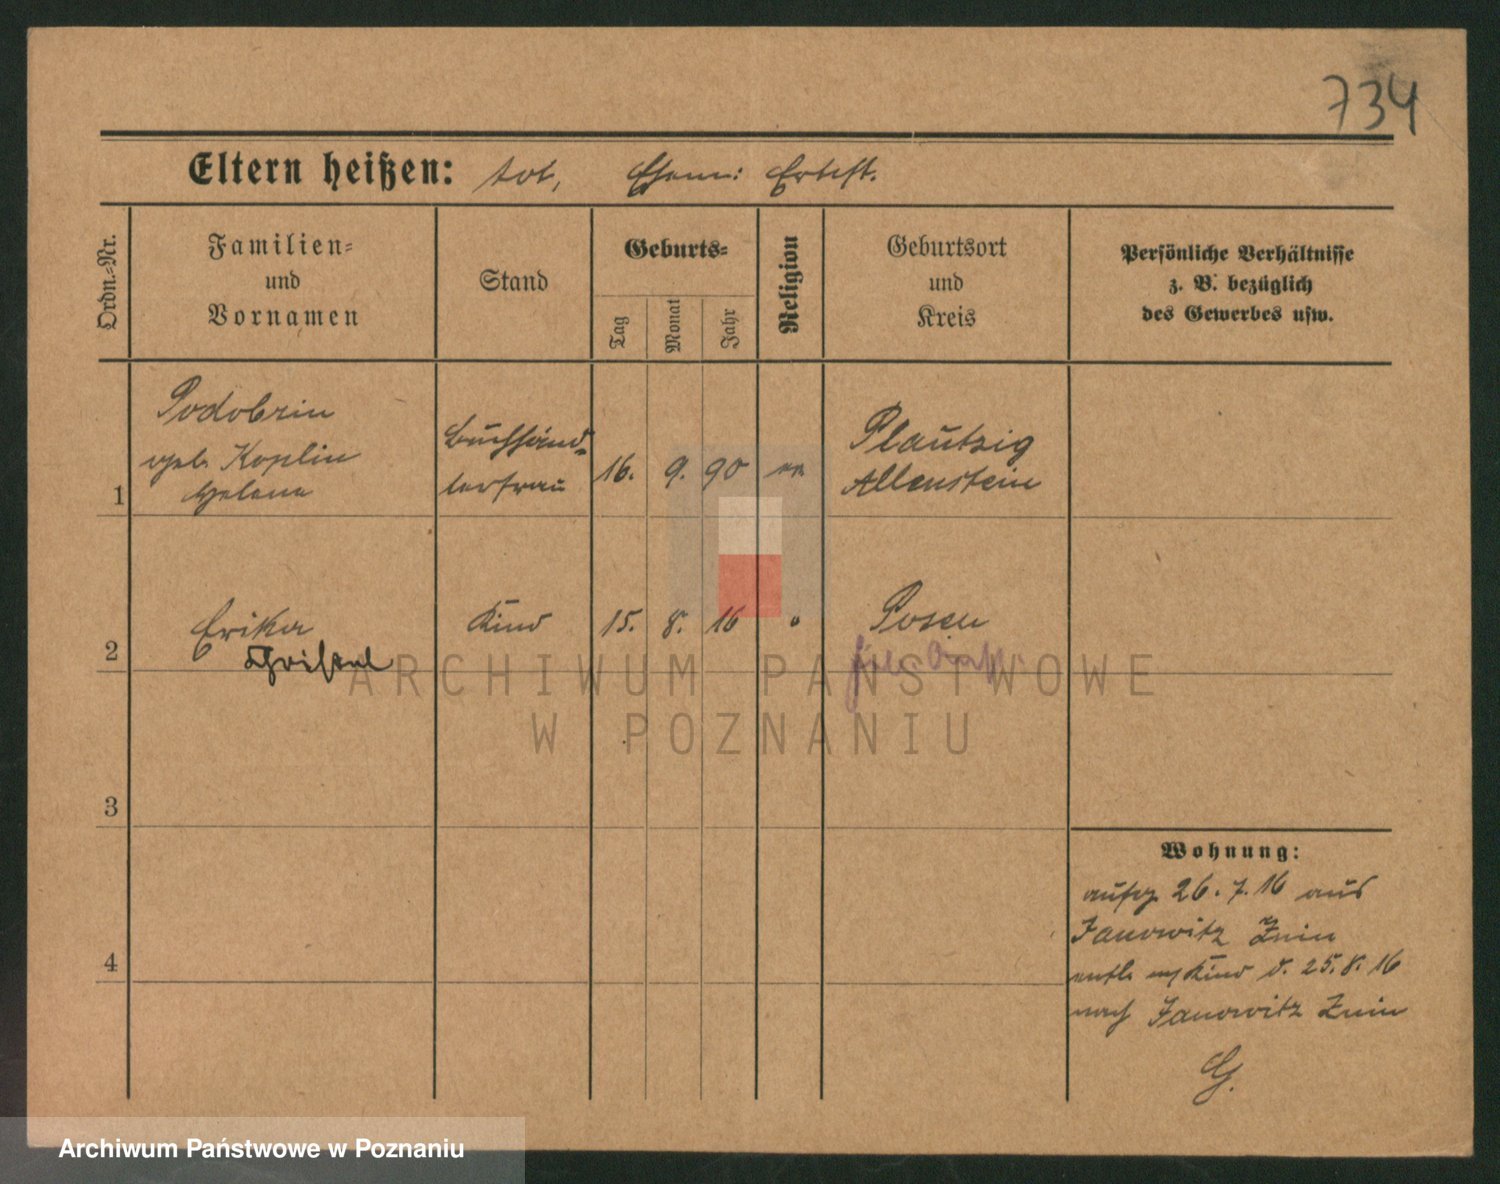 734
Eltern heißen: tot, Ehem:
Ordn.-Nr.
Familien-
und
Vornamen
Stand
Geburts-
Tag
Monat
Jahr
Religion
Geburtsort
und
Kreis
Persönliche Verhältnisse
z. B. bezüglich
des Gewerbes usw.
1
Podobrin
geb. Koplin
Helene
Buchhänd-
lerfrau
16. 9. 90 ev.
Plautzig
Allenstein
2
Erika
Christel
Kind
15. 8. 16 "
Posen
ARCHIWUM PAŃSTWOWE
W POZNANIU
3
4
Wohnung:
aufg. 26.7.16 aus
Janowitz Znin
entl. m Kind d. 25.8.16
nach Janowitz Znin
G.
Archiwum Państwowe w Poznaniu